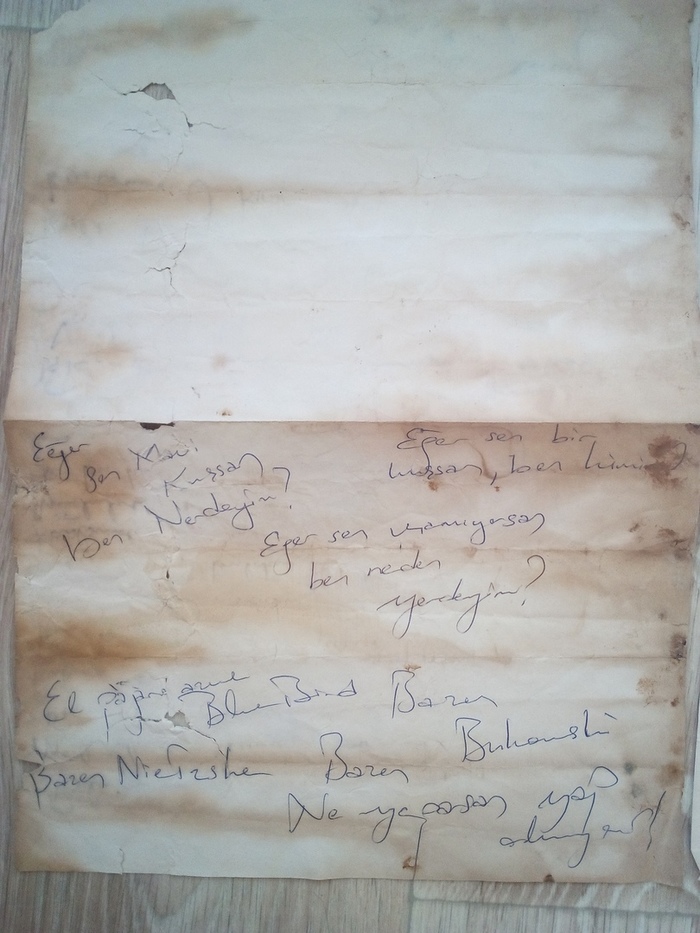 Eğer
sen Mavi
Kussan
ben Nerdeyim?
Eğer sen bir
kussan, ben kimim?
Eger sen uçamıyorsan
ben neden
yerdeyim?
El pajaro azul
Blue Bird Bazen
Bukowski
Bazen Nietzshe Bazen
Ne yaparsan yap
olmuyor!